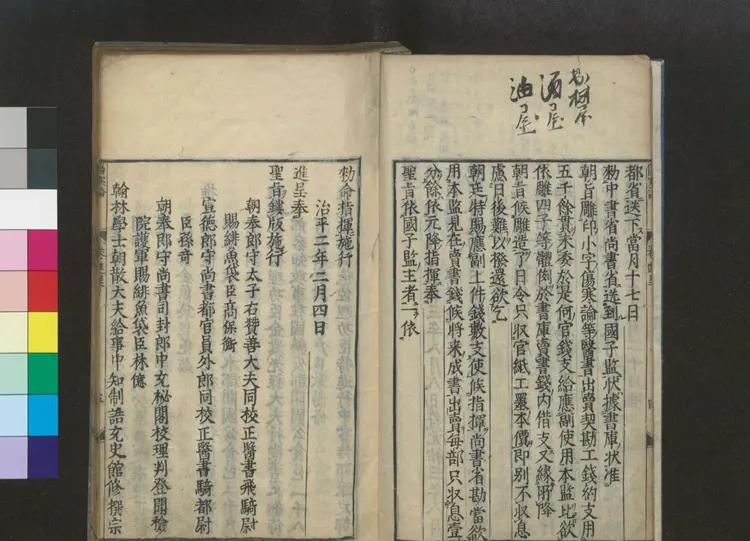 酒屋
油屋
都省送下當月十七日
勑中書省尚書省送到國子監狀據書庫狀准
朝旨雕印小字傷寒論等醫書出賣契勘工錢約支用
五千餘貫未委於是何官錢支給應副使用本監比欲
依雕四子等體例於書庫賣書錢内借支又縁所降
朝旨候雕造了日令只収官紙工墨本價即別不収息
慮日後難以撥還欲乞
朝廷特賜應副上件錢數支使候指揮尚書省勘當欲
用本監見在賣書錢候將来成書出賣每部只収息壹
分餘依元降指揮奉
聖旨依國子監主者一依
勑命指揮施行
治平二年二月四日
進呈奉
聖旨鏤版施行
朝奉郎守太子右贊善大夫同校正醫書飛騎尉
賜緋魚袋臣高保衡
宣德郎守尚書都官員外郎同校正醫書騎都尉
臣孫奇
朝奉郎守尚書司封郎中充秘閣校理判登聞檢
院護軍賜緋魚袋臣林億
翰林學士朝散大夫給事中知制誥充史館修撰宗